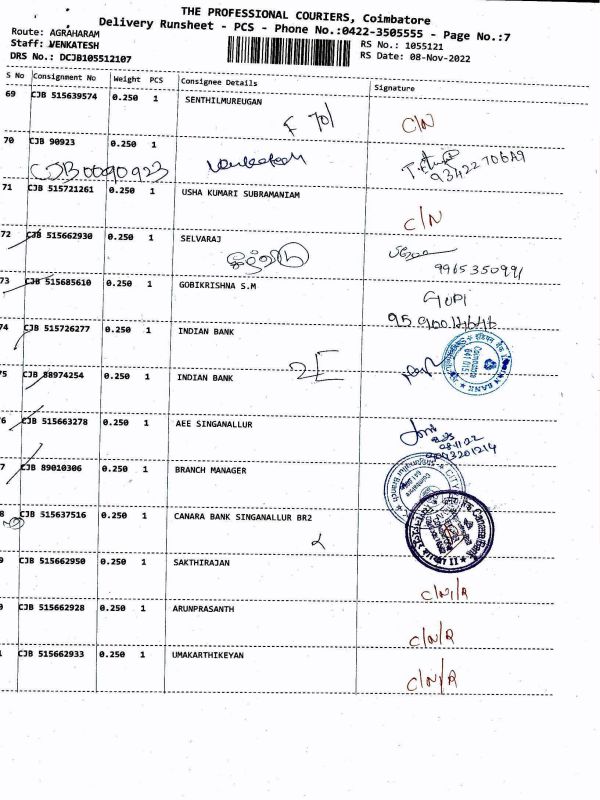 THE PROFESSIONAL COURIERS, Coimbatore
Delivery Runsheet - PCS - Phone No.:0422-3505555 - Page No.:7
Route: AGRAHARAM
Staff: VENKATESH
DRS No.: DCJB105512107
RS No.: 1055121
RS Date: 08-Nov-2022
S No Consignment No Weight PCS Consignee Details Signature
69 CJB 515639574 0.250 1 SENTHILMUREUGAN
F 701 C/N
70 CJB 90923 0.250 1
CJB0090923
71 CJB 515721261 0.250 1 USHA KUMARI SUBRAMANIAM
C/N
72 CJB 515662930 0.250 1 SELVARAJ
9965350991
73 CJB 515685610 0.250 1 GOBIKRISHNA S.M
GOPI
74 CJB 515726277 0.250 1 INDIAN BANK
2E
75 CJB 88974254 0.250 1 INDIAN BANK
6 CJB 515663278 0.250 1 AEE SINGANALLUR
7 CJB 89010306 0.250 1 BRANCH MANAGER
8 CJB 515637516 0.250 1 CANARA BANK SINGANALLUR BR2
Canara Bank
9 CJB 515662950 0.250 1 SAKTHIRAJAN
C/N/R
0 CJB 515662928 0.250 1 ARUNPRASANTH
C/N/R
1 CJB 515662933 0.250 1 UMAKARTHIKEYAN
C/N/R